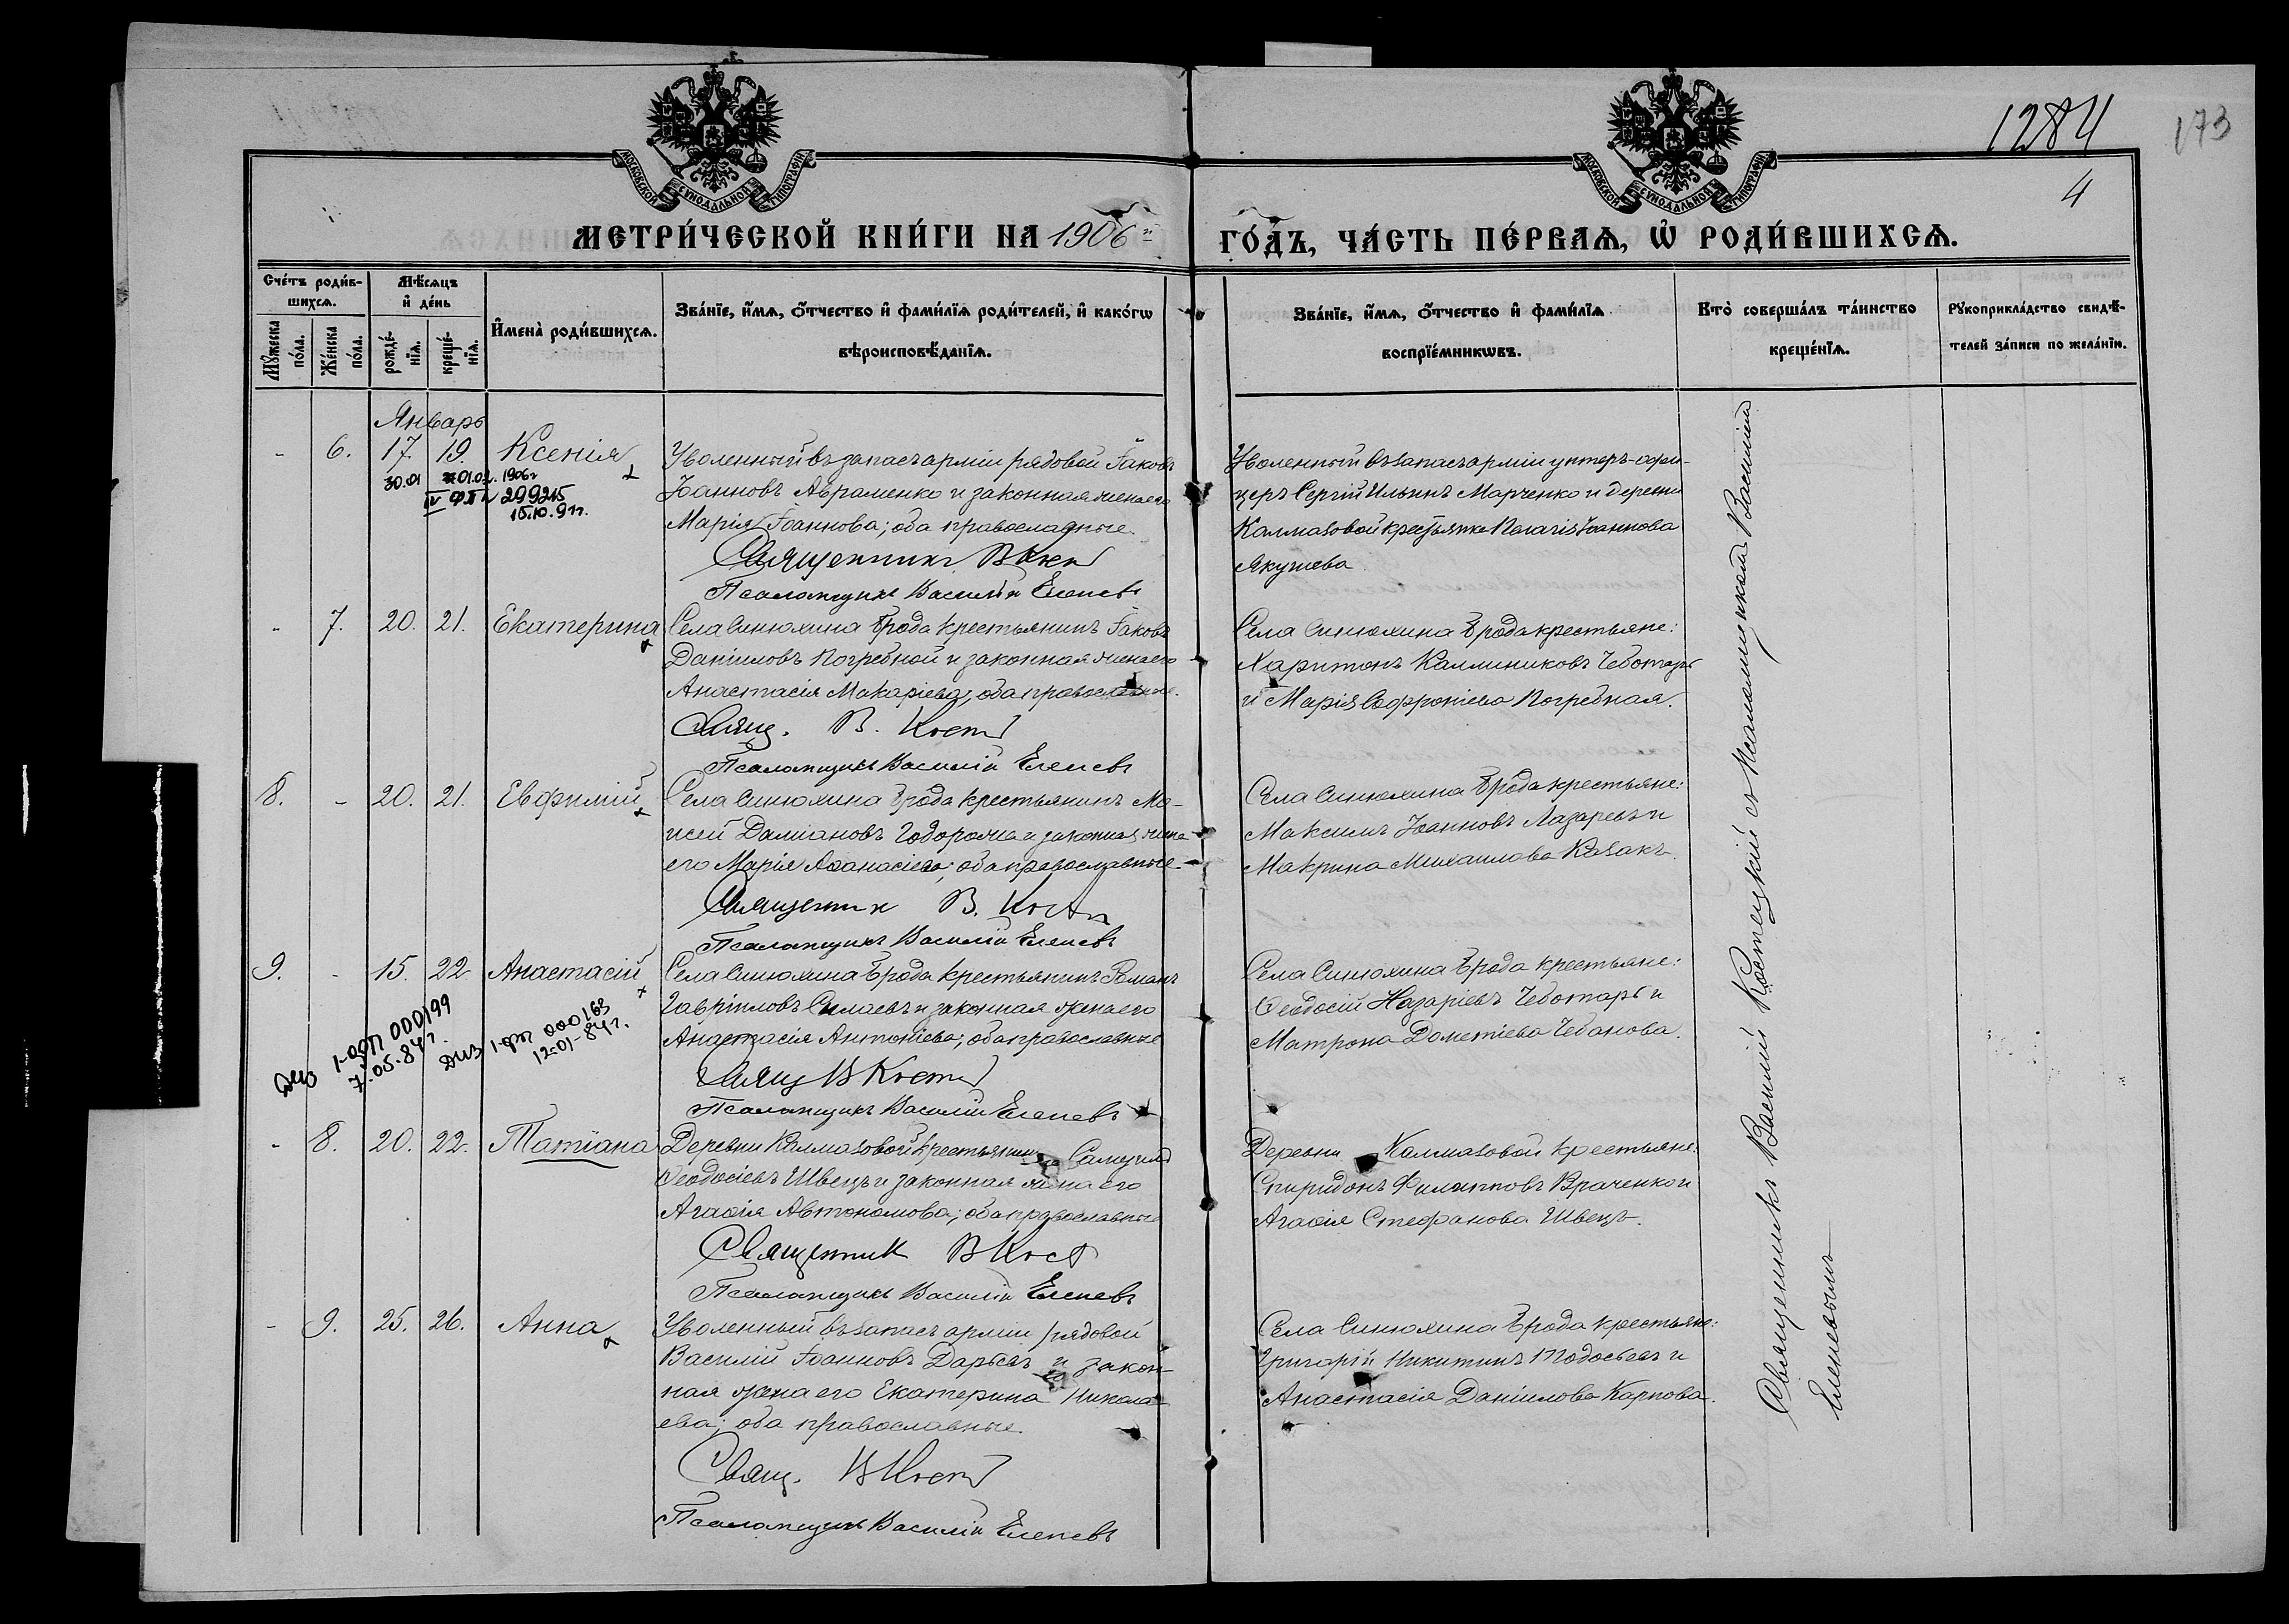 1284
173
4
МОСКОВСКОЙ СУНОДАЛЬНОЙ ТИПОГРАФІИ
МОСКОВСКОЙ СУНОДАЛЬНОЙ ТИПОГРАФІИ
МЕТРИ́ЧЕСКОЙ КНИ́ГИ НА 1906й ГО́ДЪ, ЧА́СТЬ ПЕ́РВАѦ, Ѡ РОДИ́ВШИХСѦ.
Сче́тъ роди́в-
шихсѧ.
Мꙋжеска по́ла.
Же́нска по́ла.
Мѣ́сѧцъ
и҆ де́нь
рожде́-
нїѧ.
креще́-
нїѧ.
И҆мена̀ роди́вшихсѧ.
Зва́нїе, и҆́мѧ, ѻ҆́тчество и҆ фами́лїѧ роди́телей, и҆ како́гѡ
вѣроисповѣ́данїѧ.
Зва́нїе, и҆́мѧ, ѻ҆́тчество и҆ фами́лїѧ
воспрїе́мникѡвъ.
Кто̀ соверша́лъ та́инство
креще́нїѧ.
Рꙋкоприкла́дство свидѣ́-
телей за́писи по жела́нїю.
Январь
- 6. 17. 19. Ксенія
30.01 01.02. 1906г
299215
15.10.91г.
Уволенный въ запасъ арміи рядовой Іаковъ
Іоанновъ Авраменко и законная жена его
Марія Іоаннова; оба православные.
Священникъ В Кост
Псаломщикъ Василій Еленевъ
Уволенный въ запасъ арміи унтеръ-офи-
церъ Сергій Ильинъ Марченко и деревни
Калмазовой крестьянка Пелагія Іоаннова
Якушева
- 7. 20. 21. Екатерина
Села Синюхина Брода крестьянинъ Іаковъ
Даніиловъ Погребной и законная жена его
Анастасія Макаріева; оба православные.
Свящ. В. Кост
Псаломщикъ Василій Еленевъ
Села Синюхина Брода крестьяне:
Харитонъ Каллиниковъ Чеботарь
и Марія Софроніева Погребная.
8. - 20. 21. Евфимій
Села Синюхина Брода крестьянинъ Мо-
исей Даміановъ Тодорожа и законная жена
его Марія Аѳанасіева; оба православные.
Священник В. Кост
Псаломщикъ Василій Еленевъ
Села Синюхина Брода крестьяне:
Максимъ Іоанновъ Лазаревъ и
Макрина Михаилова Казакъ.
9. - 15. 22 Анастасій
I-ФП 000199
7.05.84г.
000163
12-01-84г.
Села Синюхина Брода крестьянинъ Романъ
Гавріиловъ Силаевъ и законная жена его
Анастасія Антоніева; оба православные
Свящ В Кост
Псаломщикъ Василій Еленевъ
Села Синюхина Брода крестьяне:
Ѳеодосій Назаріевъ Чеботарь и
Матрона Дометіева Чебанова.
- 8. 20. 22. Татіана
Деревни Калмазовой крестьянинъ Самуилъ
Ѳеодосіевъ Швецъ и законная жена его
Агаѳія Автономова; оба православные
Священник В Кост
Псаломщикъ Василій Еленевъ
Деревни Калмазовой крестьяне:
Спиридонъ Филипповъ Враченко и
Агаѳія Стефанова Швецъ.
- 9. 25. 26. Анна
Уволенный въ запасъ арміи рядовой
Василій Іоанновъ и закон-
ная жена его Екатерина Никола-
ева; оба православные.
Свящ. В Кост
Псаломщикъ Василій Еленевъ
Села Синюхина Брода крестьяне:
Григорій Никитинъ и
Анастасія Даніилова Карпова.
Священникъ Василій Костецкій съ псаломщикомъ Василіемъ
Еленевымъ